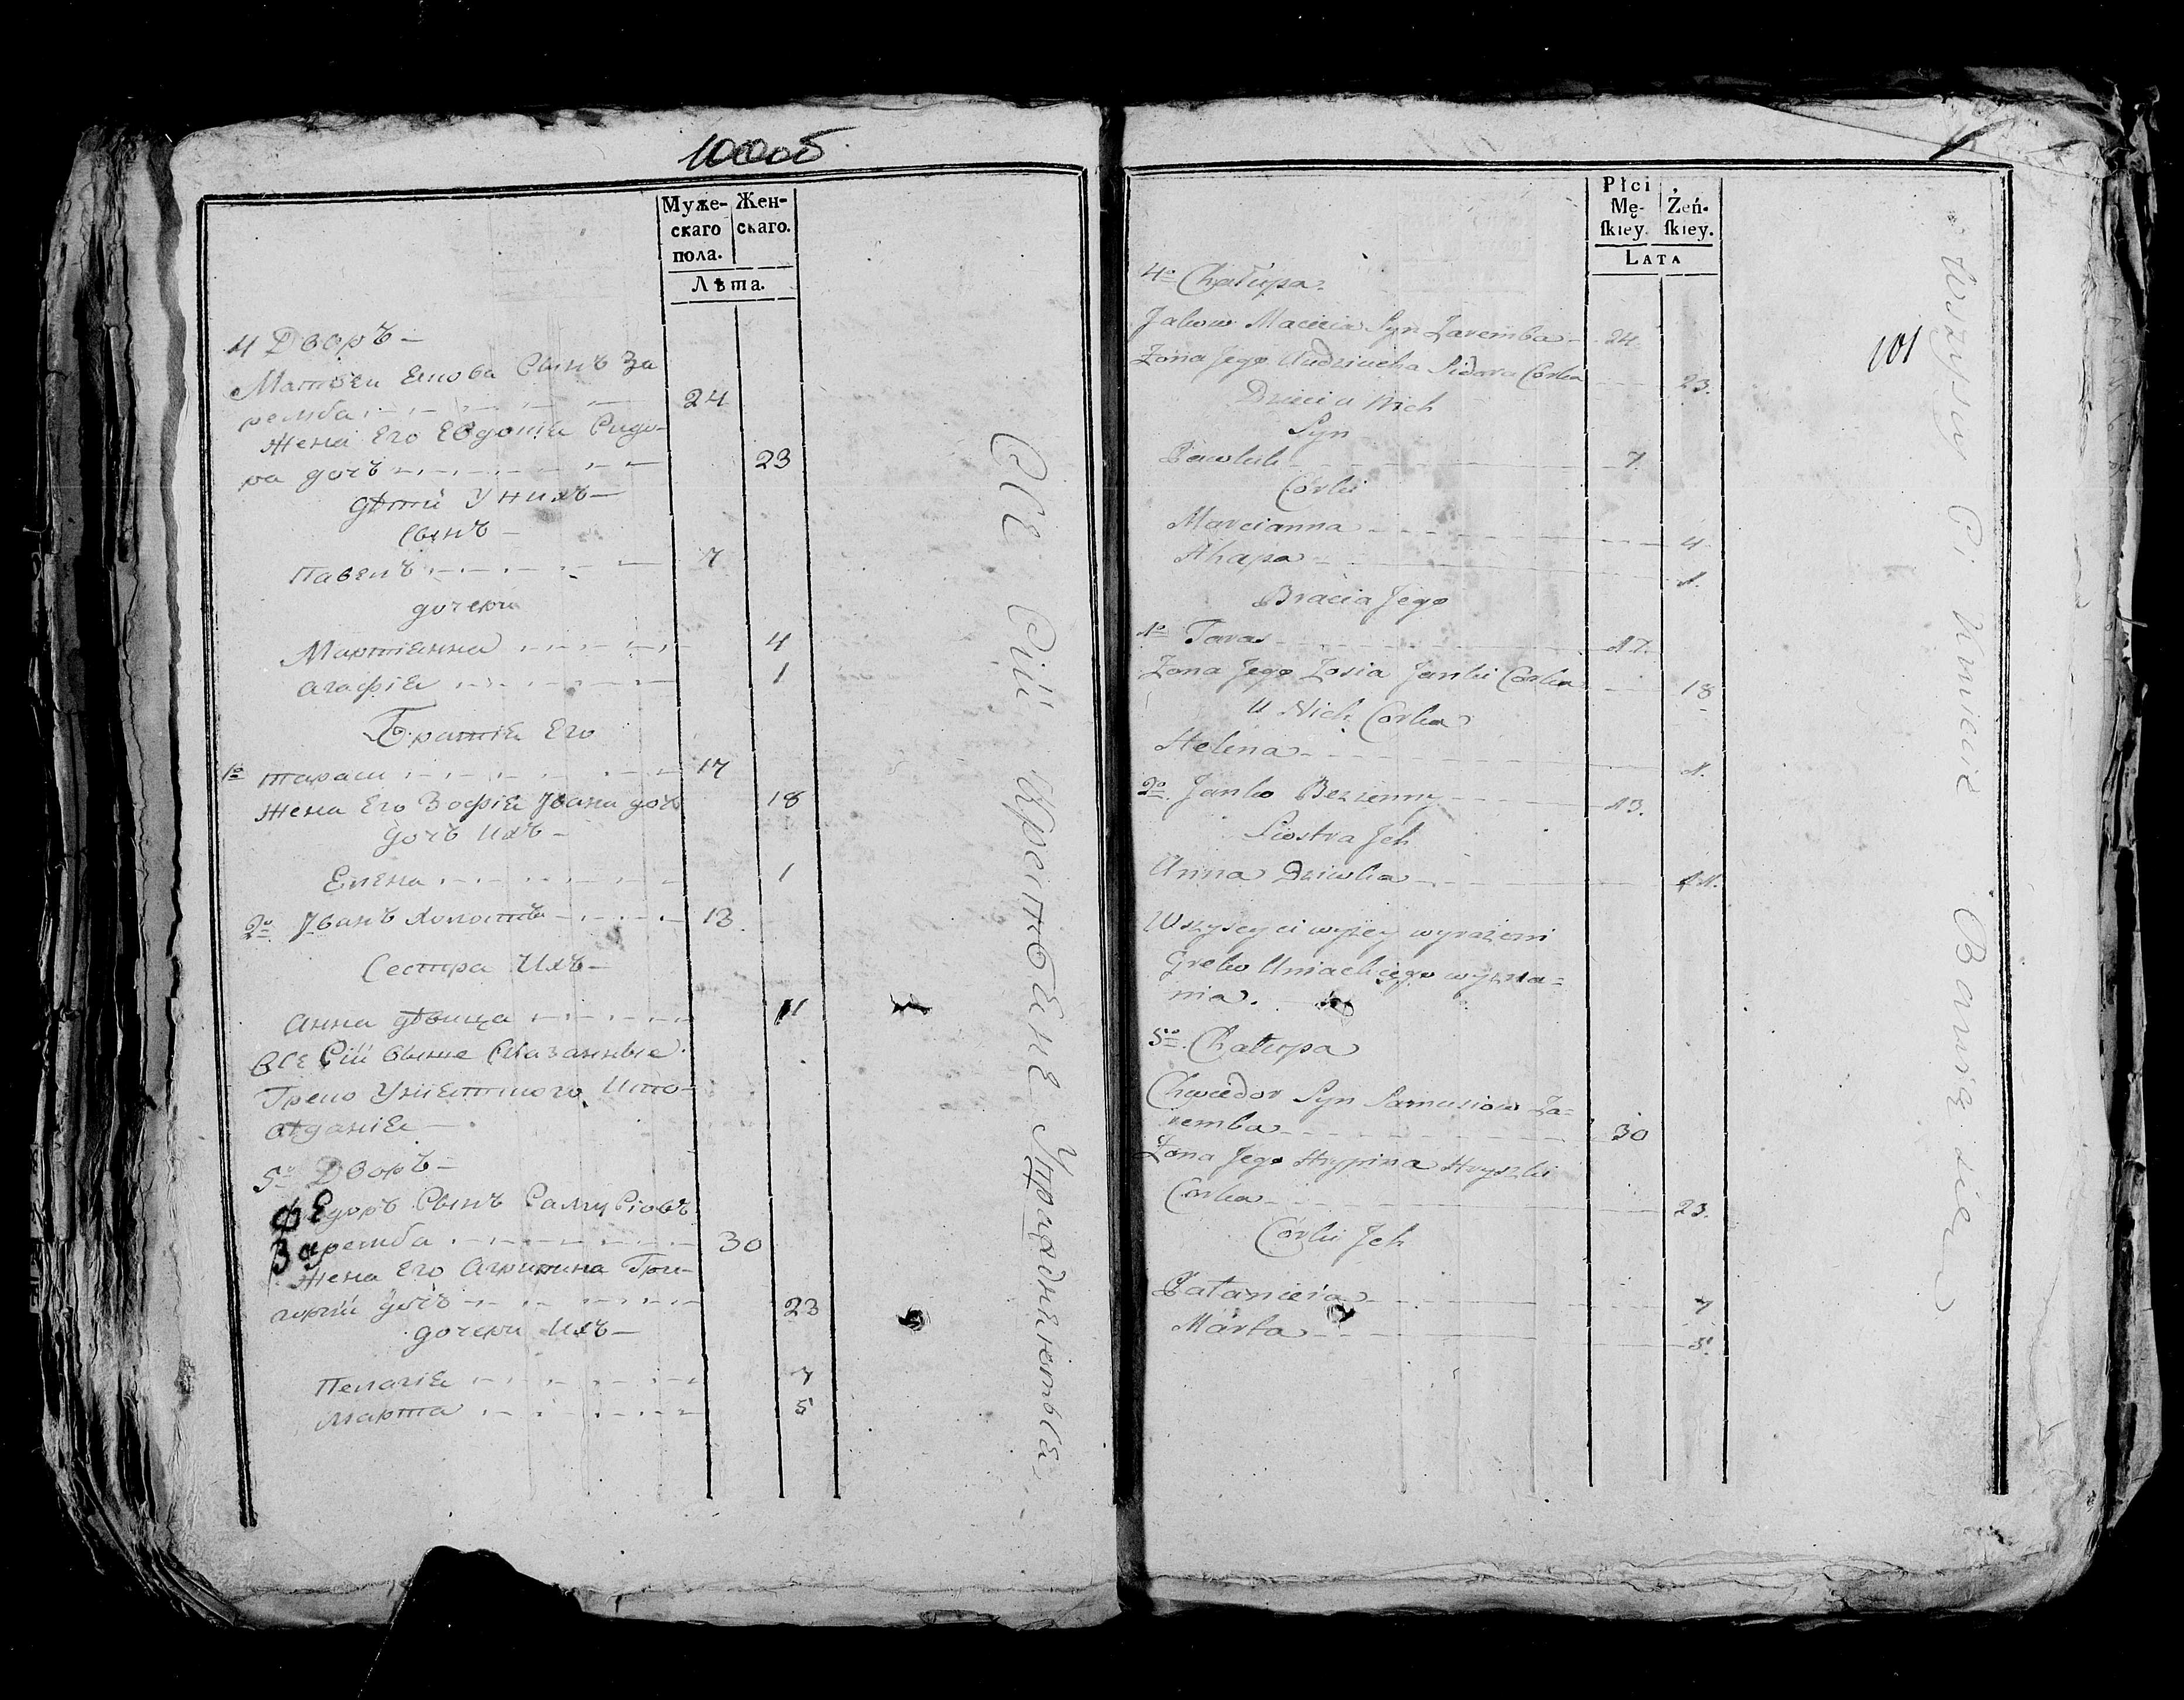 100об
Муже-
скаго
пола.
Жен-
скаго.
Лѣта.
4 Дворъ –
Матвѣи Екова Сынъ За
ремба 24
Жена Его Евдокіѣ Сидо-
ра дочъ 23
дѣти У нихъ –
Сынъ –
Павелъ 7
дочери
Мартіанна 4
агафіѣ 1
Братіѣ Его
1о тарасъ 17
Жена Его Зофіѣ Jвана дочъ 18
дочъ ихъ –
Елена 1
2о Jванъ Холостъ 13
Сестра Ихъ –
анна дѣвица 11
всѣ Сіи выше Сказанныѣ
Греко Уніетского Испо-
вѣданіѣ –
5о Дворъ –
Федоръ Сынъ Самусіовъ
Заремба 30
Жена Его Агрипина Гри-
горіи дочъ 23
дочери Ихъ –
Пелагіѣ 7
Марта 5
Всѣ Сіи Крестьѣне
Płci
Mę-
ſkiey.
Żeń-
ſkiey.
Lata
101
4o Chałupa.
Jakow Macieia Syn Zaremba 24.
Żona Jego Audziucha Sidora Corka 23.
Dzieci u Nich
Syn
Pawluk 7.
Córki
Marcianna 4
Ahapa 1.
Bracia Jego
1o Taras 17.
Żona Jego Zosia Janki Corka 18
U Nich Corka
Helena 1.
2o Janko Bezzenny 13.
Siostra Jch
Anna Dziewka 11.
Wszyscy ci wyżey wyrażeni
Greko Uniackiego wyzna=
nia.
5o Chałupa
Chwiedor Syn Samusiow Za=
remba 30
Żona Jego Hrypina Hryszki
Corka 23.
Córki Jch
Pałanieia 7
Marta 5.
Wszyscy Ci Kmiecie Bawią się